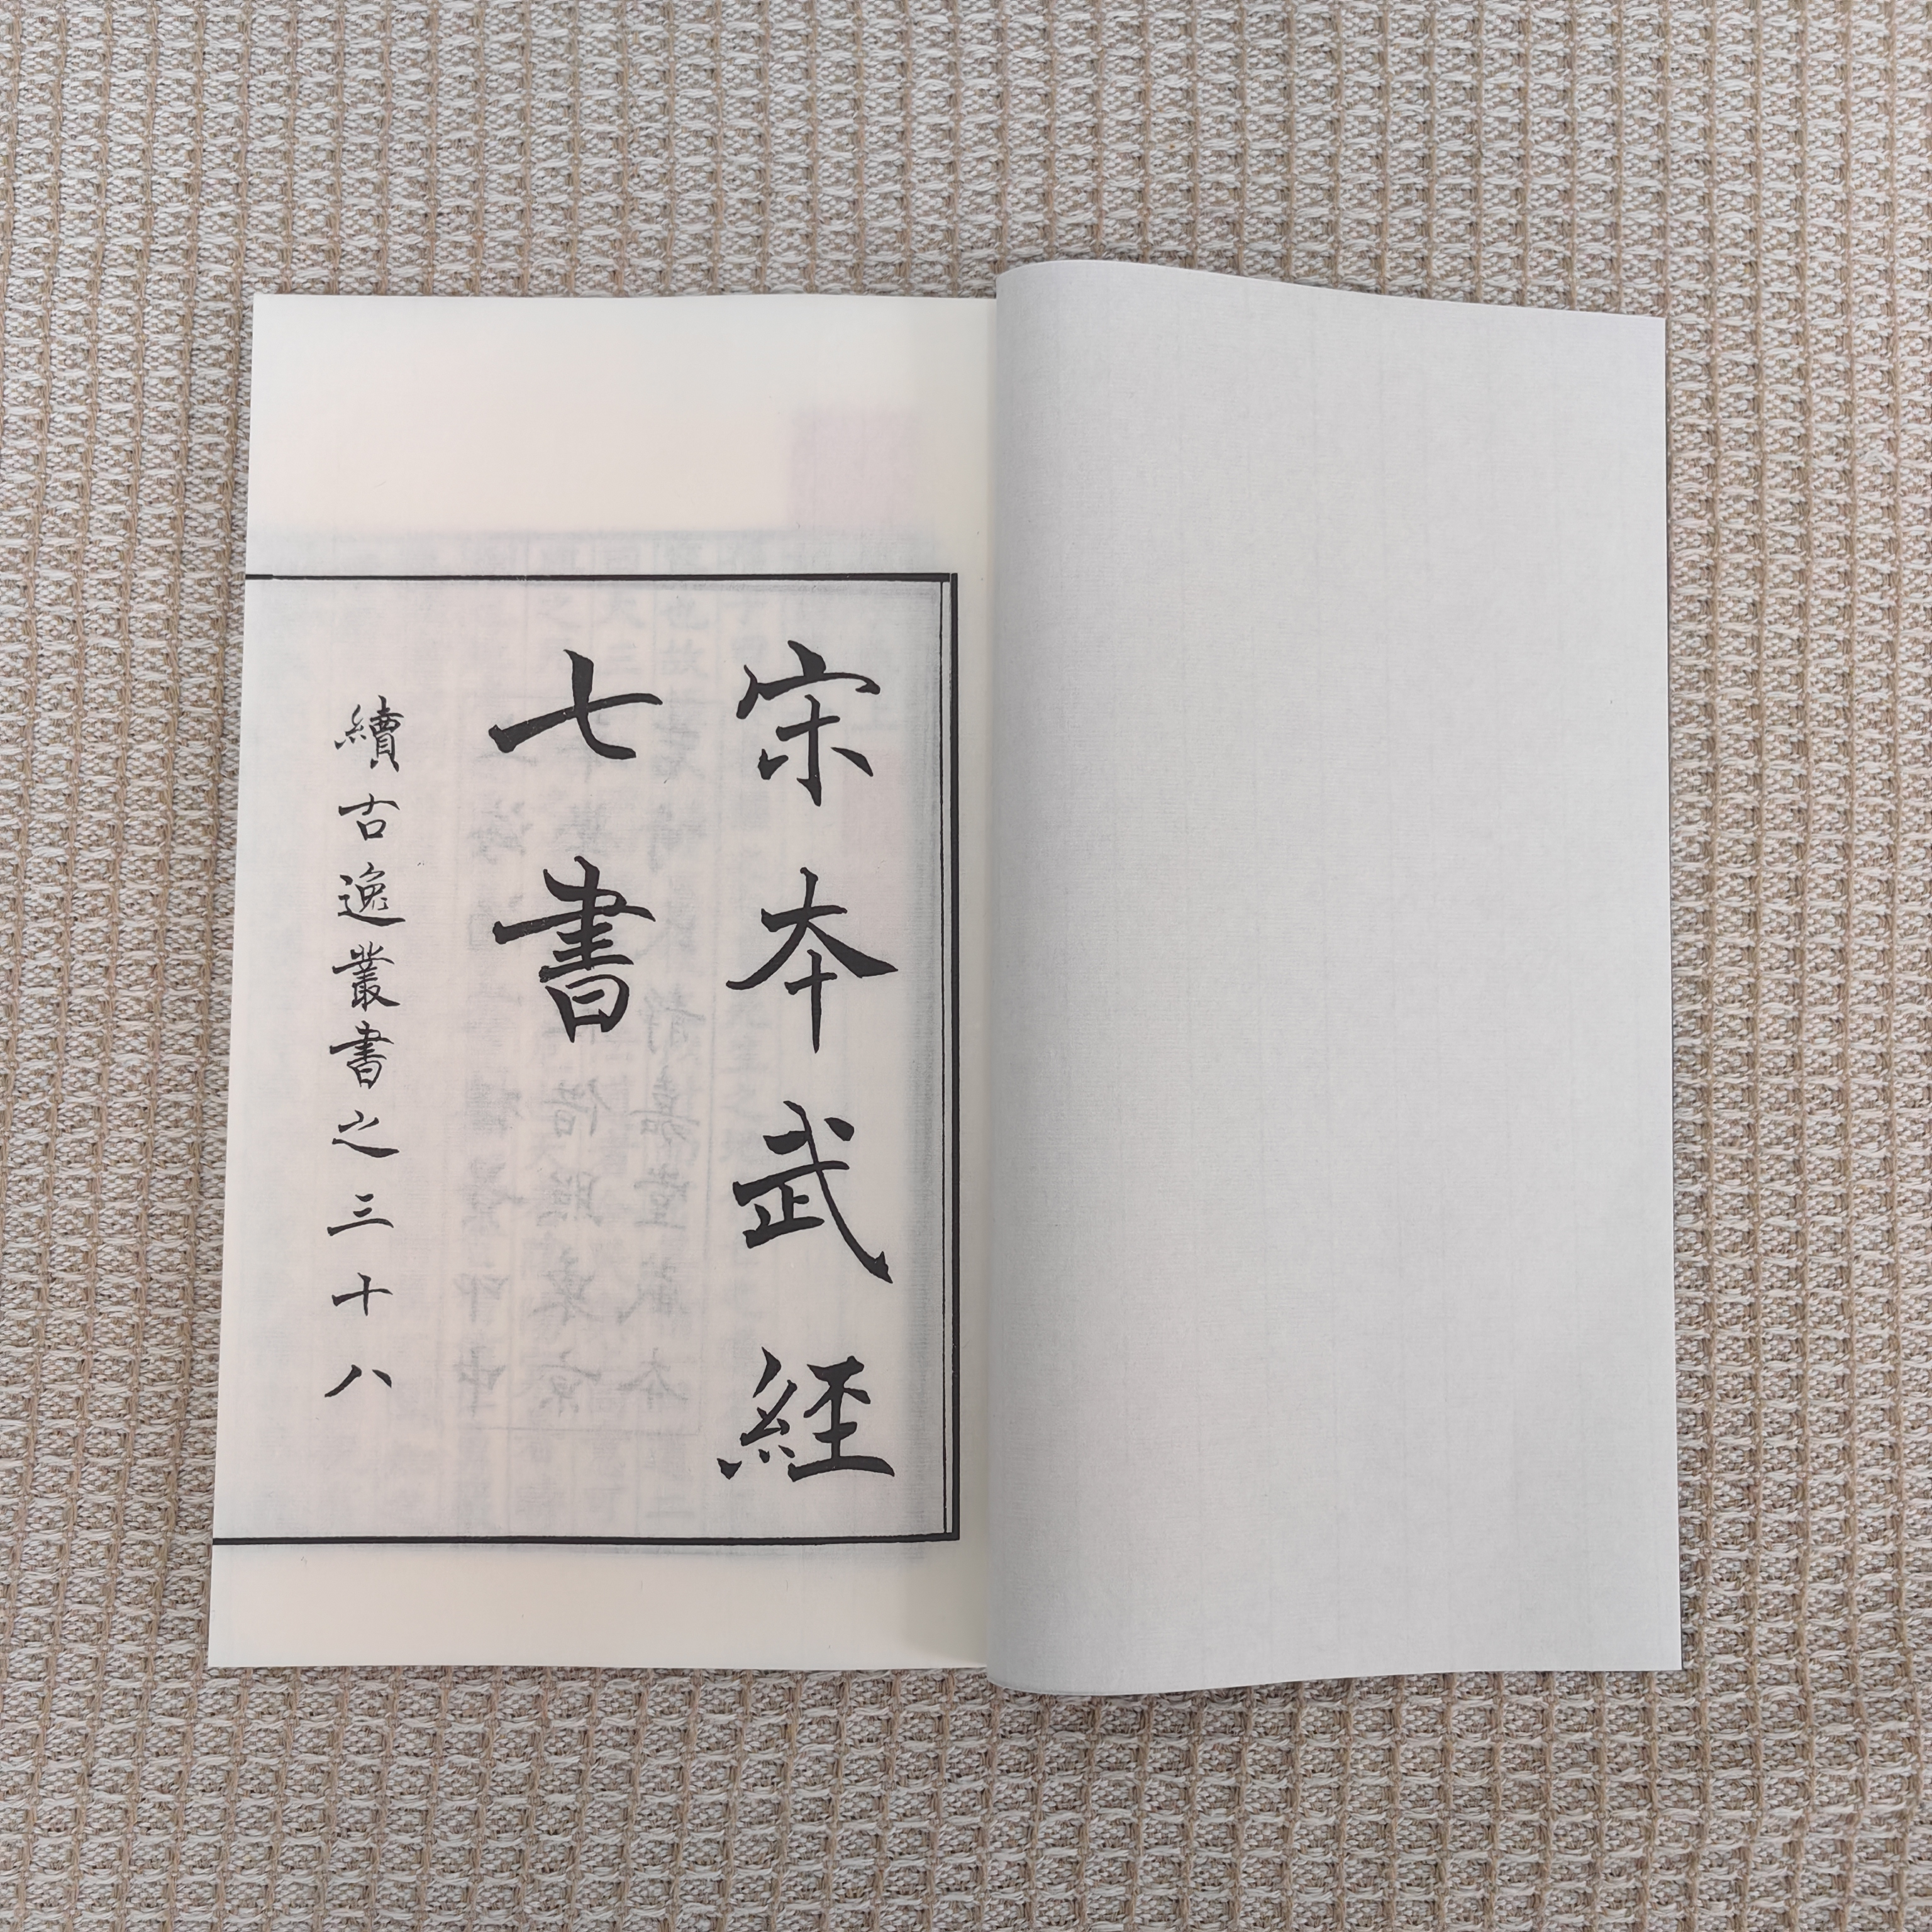 宋本武經
七書
續古逸叢書之三十八